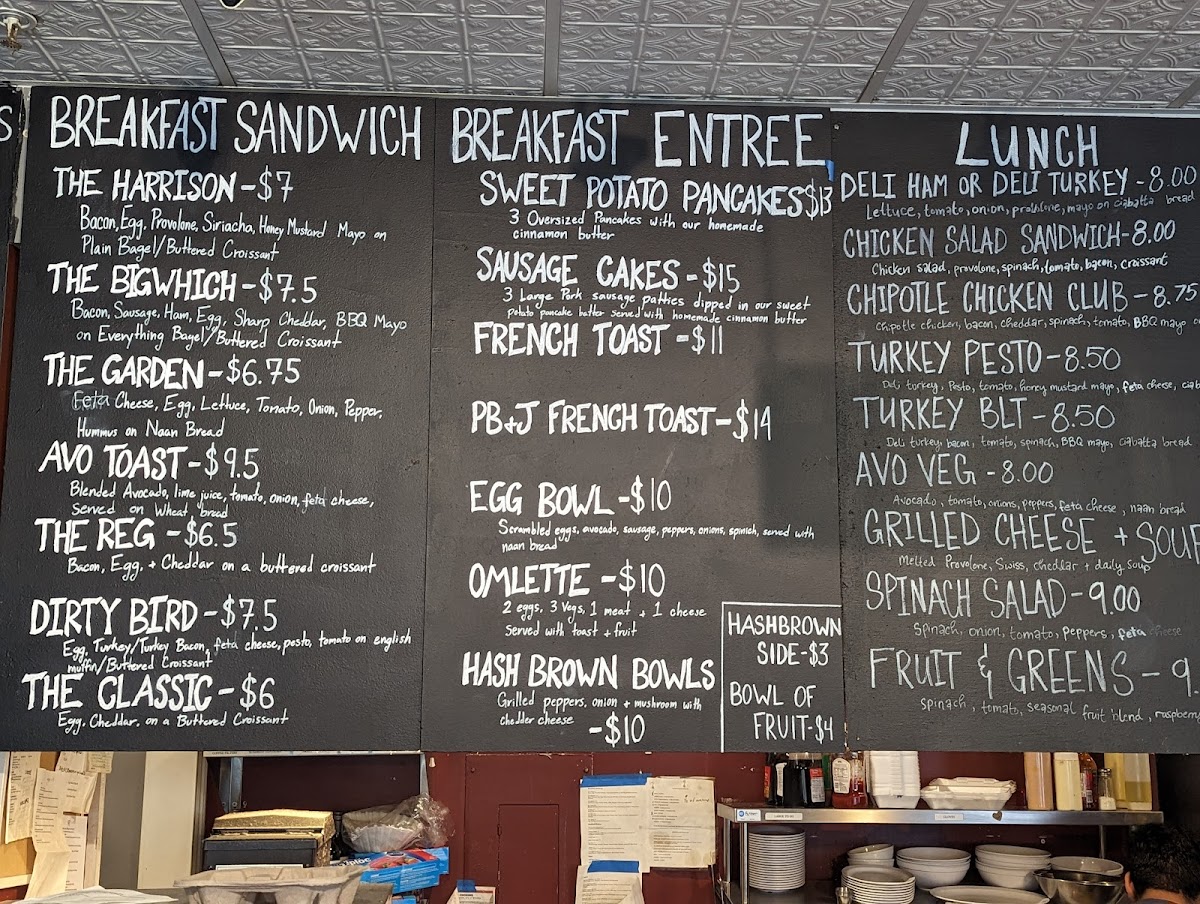 S
BREAKFAST SANDWICH
THE HARRISON-$7
Bacon, Egg, Provolone, Siriacha, Honey Mustard Mayo on
Plain Bagel/Buttered Croissant
THE BIGWHICH-$7.5
Bacon, Sausage, Ham, Egg, Sharp Cheddar, BBQ Mayo
on Everything Bagel/Buttered Croissant
THE GARDEN-$6.75
Feta Cheese, Egg, Lettuce, Tomato, Onion, Pepper,
Hummus on Naan Bread
AVO TOAST-$9.5
Blended Avocado, lime juice, tomato, onion, feta cheese,
Served on Wheat bread
THE REG-$6.5
Bacon, Egg, + Cheddar on a buttered croissant
DIRTY BIRD-$7.5
Egg, Turkey/Turkey Bacon, feta cheese, pesto, tomato on english
muffin/Buttered Croissant
THE CLASSIC-$6
Egg, Cheddar, on a Buttered Croissant
BREAKFAST ENTREE
SWEET POTATO PANCAKES $13
3 Oversized Pancakes with our homemade
cinnamon butter
SAUSAGE CAKES-$15
3 Large Pork sausage patties dipped in our sweet
potato pancake batter served with homemade cinnamon butter
FRENCH TOAST-$11
PB+J FRENCH TOAST-$14
EGG BOWL-$10
Scrambled eggs, avocado, sausage, peppers, onions, spinich, served with
naan bread
OMLETTE-$10
2 eggs, 3 Vegs, 1 meat + 1 cheese
Served with toast + fruit
HASH BROWN BOWLS
Grilled peppers, onion + mushroom with
chedder cheese
-$10
HASHBROWN
SIDE-$3
BOWL OF
FRUIT-$4
LUNCH
DELI HAM OR DELI TURKEY-8.00
Lettuce, tomato, onion, mayo on ciabatta bread
CHICKEN SALAD SANDWICH-8.00
Chicken salad, provolone, spinach, tomato, bacon, croissant
CHIPOTLE CHICKEN CLUB-8.75
Chipotle chicken, bacon, cheddar, spinach, tomato, BBQ mayo
TURKEY PESTO-8.50
Deli turkey, Pesto, tomato, honey mustard mayo, feta cheese, ciab
TURKEY BLT-8.50
Deli turkey, bacon, tomato, spinach, BBQ mayo, ciabatta bread
AVO VEG-8.00
Avocado, tomato, onions, peppers, feta cheese, naan bread
GRILLED CHEESE + SOUP
Melted Provolone, Swiss, cheddar + daily soup
SPINACH SALAD-9.00
Spinach, onion, tomato, Peppers, feta cheese
FRUIT & GREENS-9
spinach, tomato, seasonal fruit blend, raspberry